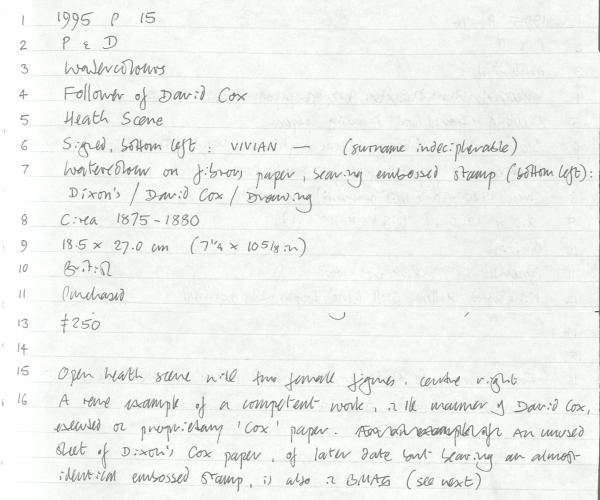 1 1995 P 15
2 P & D
3 Watercolours
4 Follower of David Cox
5 Heath Scene
6 Signed, bottom left: VIVIAN — (surname indecipherable)
7 Watercolour on fibrous paper, bearing embossed stamp (bottom left):
Dixon's / David Cox / Drawing
8 Circa 1875-1880
9 18.5 x 27.0 cm (7 1/4 x 10 5/8 in)
10 British
11 Purchased
13 £250
14
15 Open heath scene with two female figures, centre right
16 A rare example of a competent work, in the manner of David Cox,
executed on proprietary 'Cox' paper. An unused
sheet of Dixon's Cox paper, of later date but bearing an almost-
identical embossed stamp, is also in BMAG (see next)